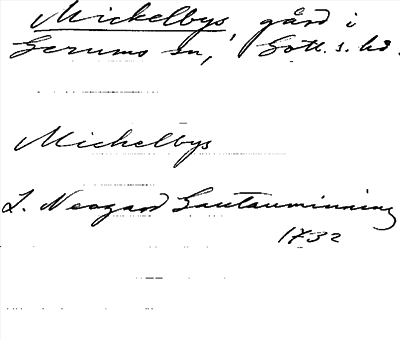 Mickelbys, gård i
Gerums sn, Gotl. s. hd.
Michelbys
L. Neogard Gautauminning
1732